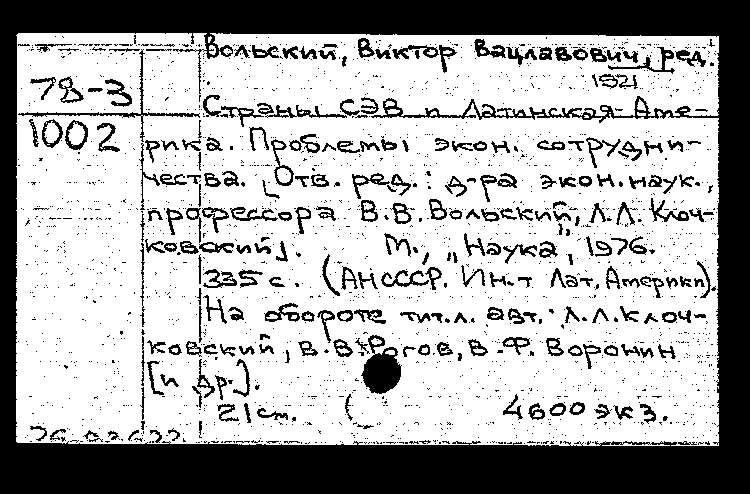 Вольский, Виктор Вацлавович, ред.
1921
78-3
Страны СЭВ и Латинская Аме-
1002
рика. Проблемы экон. сотрудни-
чества. [Отв. ред.: д-ра экон. наук.,
профессора В.В. Вольский, Л.Л. Клоч-
ковский]. М., „Наука”, 1976.
335 с. (АН СССР. Ин-т Лат. Америки).
На обороте тит. л. авт.: Л.Л. Клоч-
ковский, В.В. Рогов, В.Ф. Воронин
[и др.].
21 см. 4600 экз.